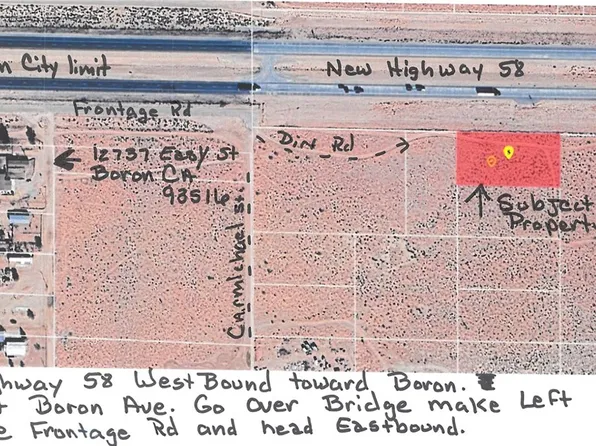 n City limit
New Highway 58
Frontage Rd
Dirt Rd
12737 Easy St
Boron CA.
93516
Carmichael St.
Subject
Propert
hway 58 West Bound toward Boron.
t Boron Ave. Go Over Bridge make Left
e Frontage Rd and head Eastbound.